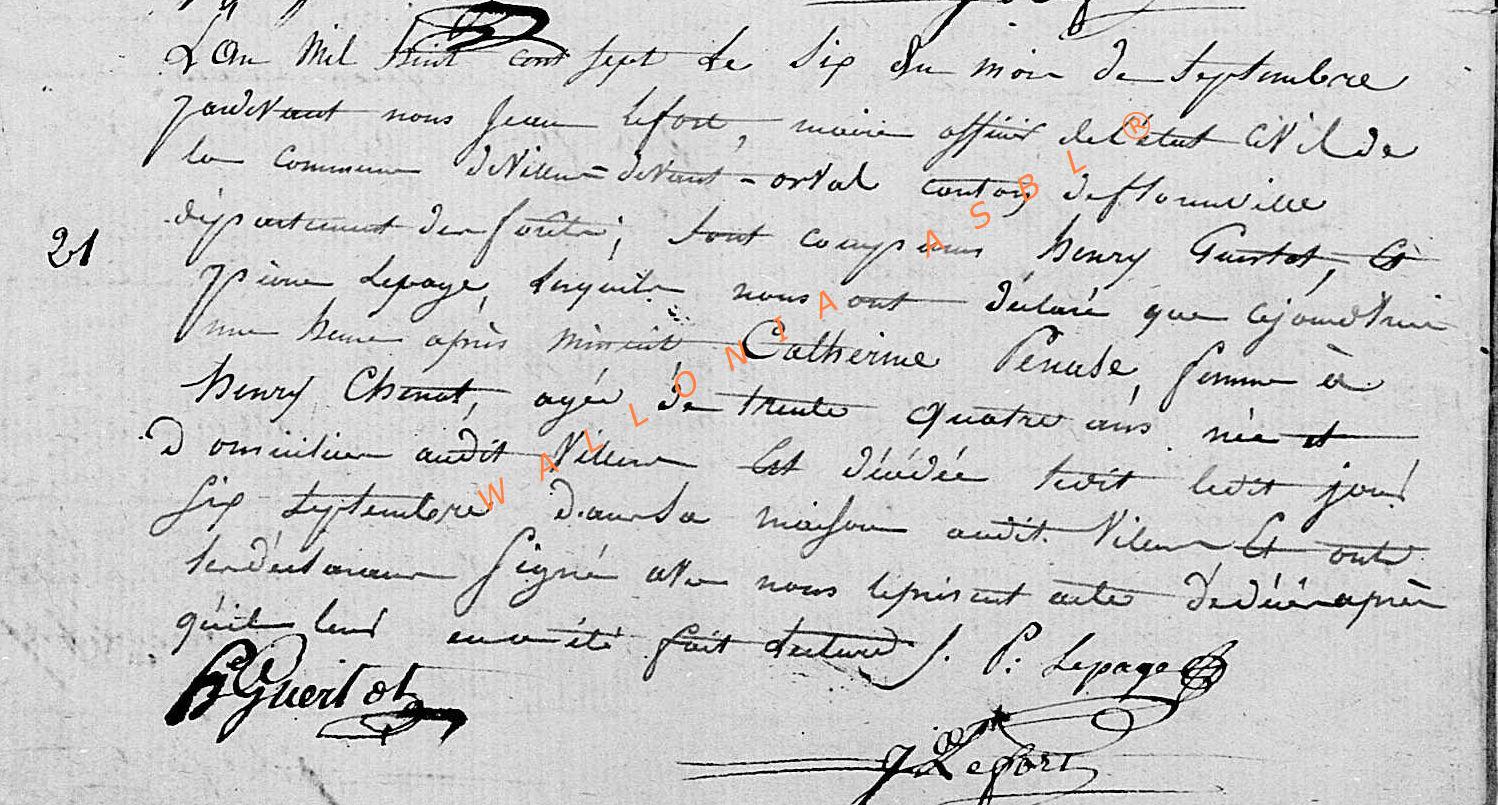 L'an mil huit cent sept le six du mois de septembre
pardevant nous Jean Lefort, maire officier de l'état civil de
la commune de Villers-devant-orval canton de florenville
département des forêts, sont comparus henry Guertot, et
pierre Lepage, lesquels nous ont déclaré que cejourd'hui
une heure après minuit Catherine femme à
henry Chenot, agée de trente quatre ans née et
domiciliée audit Villers est décédée ledit jour
21
six septembre dans sa maison audit Villers et ont
les déclarans signé avec nous le présent acte de décés après
qu'il leur en a été fait lecture /. P: Lepage
h Guertot
J Lefort
WALLONIA ASBL ®